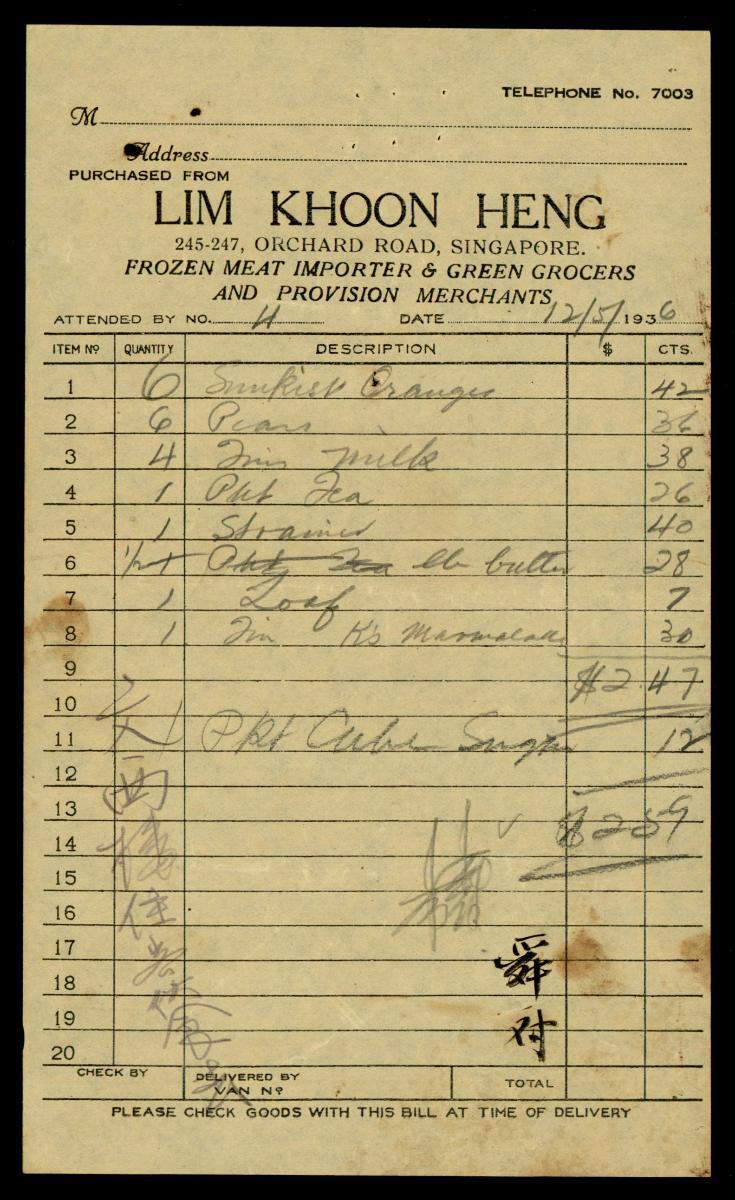 TELEPHONE No. 7003
M
Address
PURCHASED FROM
LIM KHOON HENG
245-247, ORCHARD ROAD, SINGAPORE.
FROZEN MEAT IMPORTER & GREEN GROCERS
AND PROVISION MERCHANTS
ATTENDED BY NO. 4 DATE 12/5/1936
ITEM Nº QUANTITY DESCRIPTION $ CTS.
1 6 Sunkist Oranges 42
2 6 Pears 36
3 4 Tins Milk 38
4 1 Pkt Tea 26
5 1 Strainer 40
6 1/2 1 Pkt Tea lb butter 28
7 1 Loaf 7
8 1 Tin K's Marmalade 30
9 $2.47
10
11 1 Pkt Cube Sugar 12
12
13 $2.59
14
15
16
17 舜
18
19 付
20
CHECK BY DELIVERED BY VAN Nº TOTAL
PLEASE CHECK GOODS WITH THIS BILL AT TIME OF DELIVERY